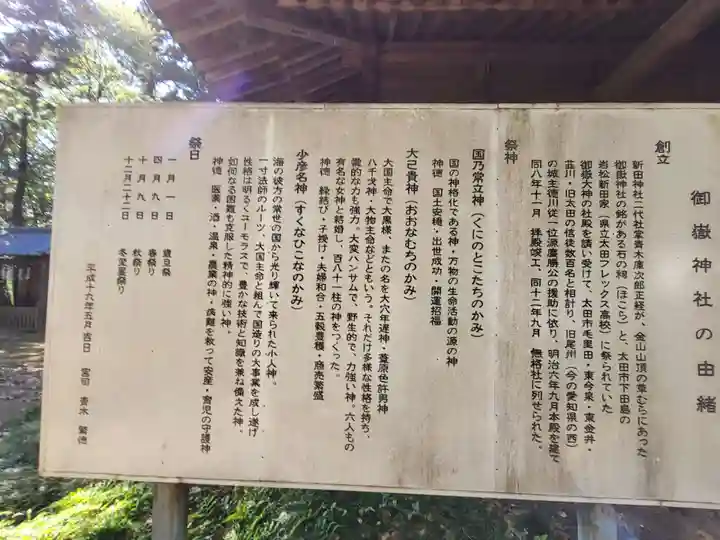 御嶽神社の由緒
創立
新田神社二代社掌青木庫次郎正経が、金山山頂の草むらにあった
御嶽神社の銘がある石の祠(ほこら)と、太田市下田島の
岩松新田家(県立太田フレックス高校)に祭られていた
御嶽大神の社殿を請い受けて、太田市毛里田・東今泉・東金井・
韮川・旧太田の信徒数百名と相計り、旧尾州(今の愛知県の西)
の城主徳川従一位源慶勝公の援助に依り、明治六年九月本殿を建て
同八年十一月 拝殿竣工、同十二年九月 無格社に列せられた。
祭神
国乃常立神(くにのとこたちのかみ)
国の神格化である神・万物の生命活動の源の神
神徳 国土安穏・出世成功・開運招福
大己貴神(おおなむちのかみ)
大国主命で大黒様、またの名を大穴年遅神・葦原色許男神
八千戈神・大物主命などともいう。それだけ多様な性格を持ち、
霊的な力も強力。大変ハンサムで、野生的で、力強い神。六人もの
有名な女神と結婚し、百八十一柱の神をつくった。
神徳 縁結び・子授け・夫婦和合・五穀豊穣・商売繁盛
少彦名神(すくなひこなのかみ)
海の彼方の常世の国から光り輝いて来られた小人神。
一寸法師のルーツ、大国主命と組んで国造りの大事業を成し遂げ
性格は明るくユーモラスで、豊かな技術と知識を兼ね備えた神。
如何なる困難も克服した精神的に強い神。
神徳 医薬・酒・温泉・農業の神・病難を救って安産・育児の守護神
祭日
一月一日 歳旦祭
四月九日 春祭り
十月九日 秋祭り
十二月二十二日 冬至星祭り
平成十六年五月吉日 宮司 青木 繁徳